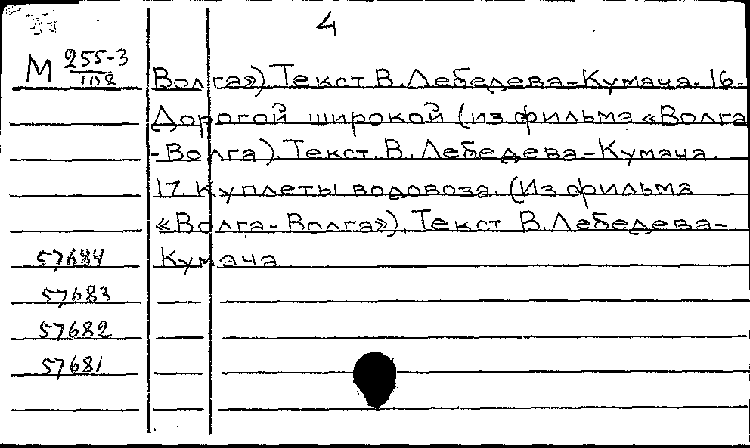 4
М 255-3
1102
Волга»). Текст В. Лебедева-Кумача. 16.
Дорогой широкой (из фильма «Волга
-Волга). Текст. В. Лебедева-Кумача.
17. Куплеты водовоза. (Из фильма
«Волга-Волга»). Текст В. Лебедева-
Кумача
57684
57683
57682
57681